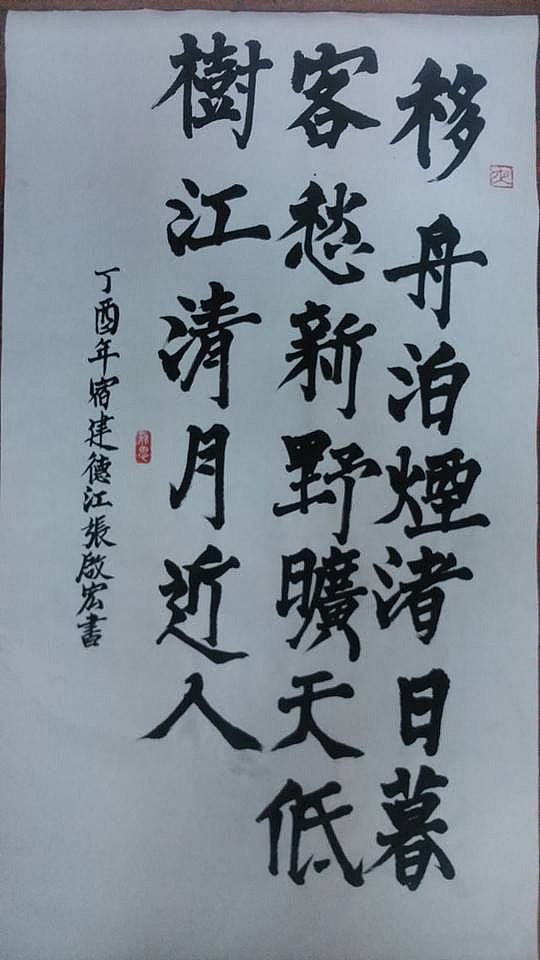 移舟泊煙渚日暮
客愁新野曠天低
樹江清月近人
丁酉年宿建德江張啟宏書